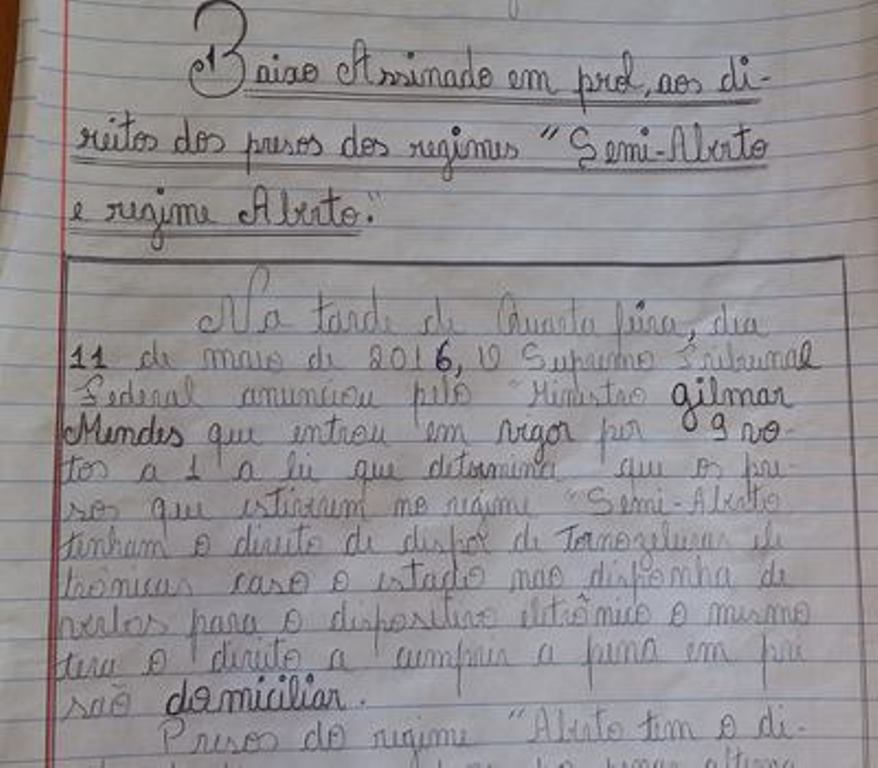 Baixo Assinado em prol, aos di-
reitos dos presos dos regimes "Semi-Aberto
e regime Aberto."
Na tarde de Quarta feira, dia
11 de maio de 2016, 10 Supremo Tribunal
Federal anunciou pelo Ministro gilmar
Mendes que entrou em vigor por 09 vo-
tos a 1 a lei que determina que os pre-
sos que estiverem no regime "Semi-Aberto
tenham o direito de dispor de Tornozeleiras ele
trônicas caso o estado não disponha de
verbas para o dispositivo eletrônico o mesmo
tera o direito a cumprir a pena em pri
são domiciliar.
Presos do regime "Aberto tem o di-